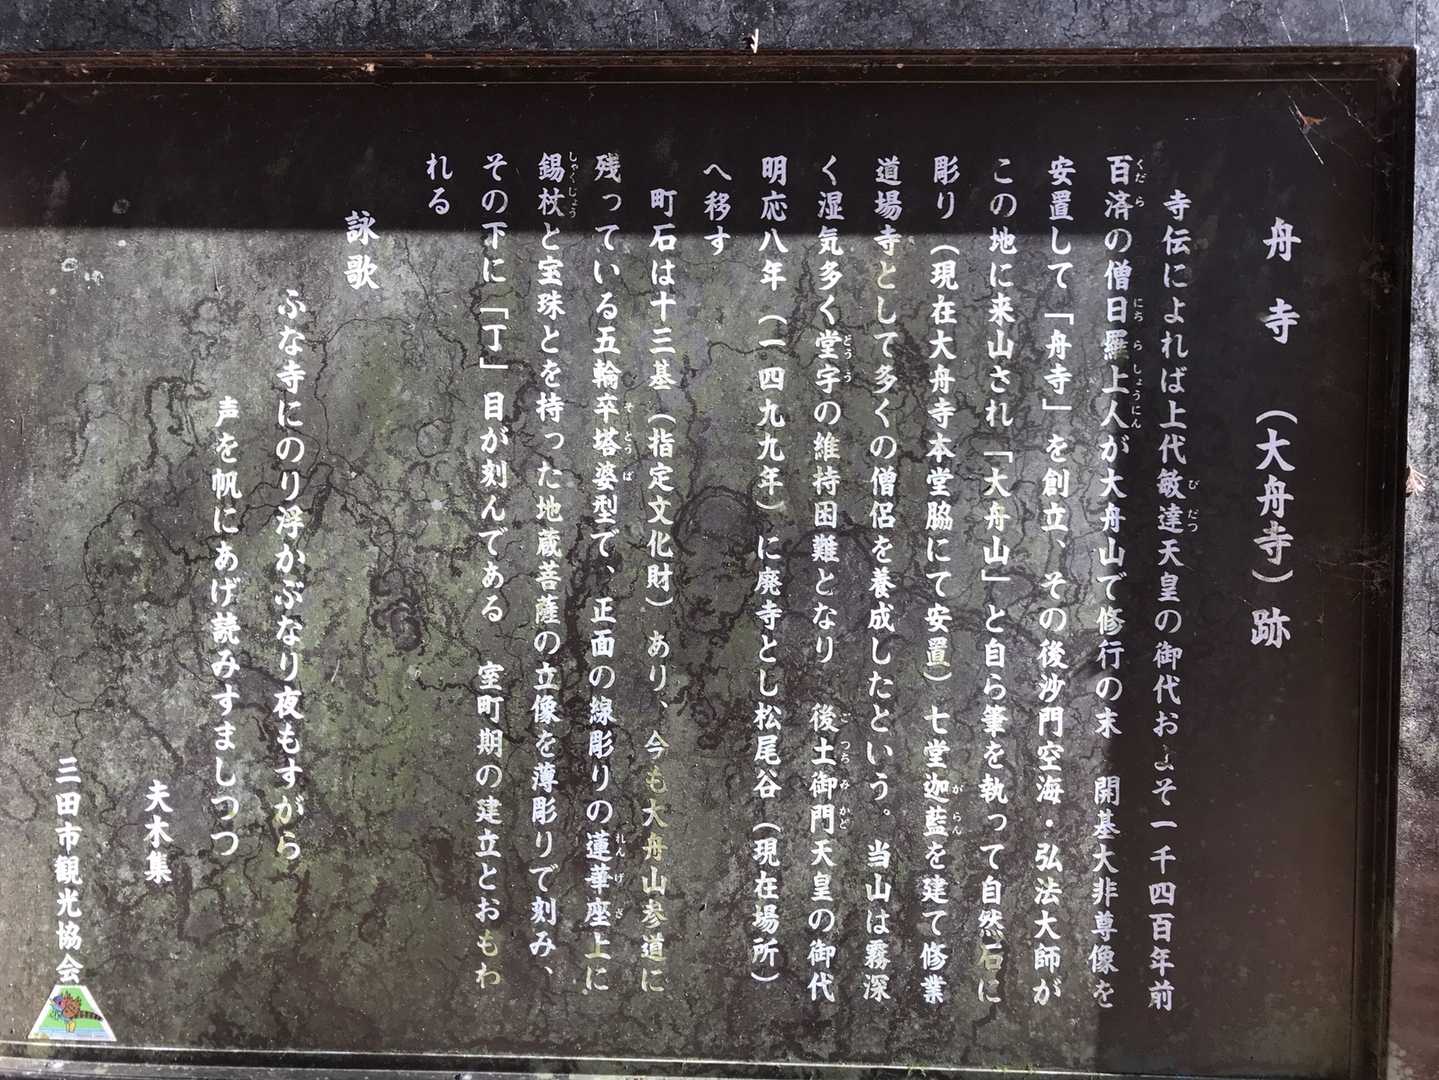 舟寺（大舟寺）跡
寺伝によれば上代敏達天皇の御代およそ一千四百年前
百済の僧日羅上人が大舟山で修行の末　開基大非尊像を
安置して「舟寺」を創立、その後沙門空海・弘法大師が
この地に来山され「大舟山」と自ら筆を執って自然石に
彫り（現在大舟寺本堂脇にて安置）七堂迦藍を建て修業
道場寺として多くの僧侶を養成したという。当山は霧深
く湿気多く堂宇の維持困難となり　後土御門天皇の御代
明応八年（一四九九年）に廃寺とし松尾谷（現在場所）
へ移す
町石は十三基（指定文化財）あり、今も大舟山参道に
残っている五輪卒塔婆型で、正面の線彫りの蓮華座上に
錫杖と宝珠とを持った地蔵菩薩の立像を薄彫りで刻み、
その下に「丁」目が刻んである　室町期の建立とおもわ
れる
詠歌
ふな寺にのり浮かぶなり夜もすがら
声を帆にあげ読みすましつつ
夫木集
三田市観光協会
くだら
にちらしょうにん
びだつ
がらん
どうう
ごつちみかど
そとうば
れんげざ
しゃくじょう